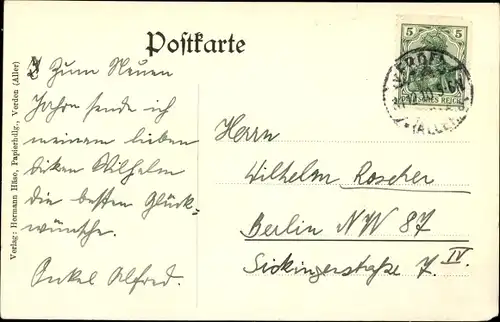 Postkarte
5 5
DEUTSCHES REICH
VERDEN
(ALLER)
Zum Neuen
Jahre sende ich
meinem lieben
dicken Wilhelm
die besten Glück-
wünsche.
Onkel Alfred.
Herrn
Wilhelm Roscher
Berlin NW 87
Sickingerstraße 7. IV.
Verlag: Hermann Häse, Papierhdlg., Verden (Aller)